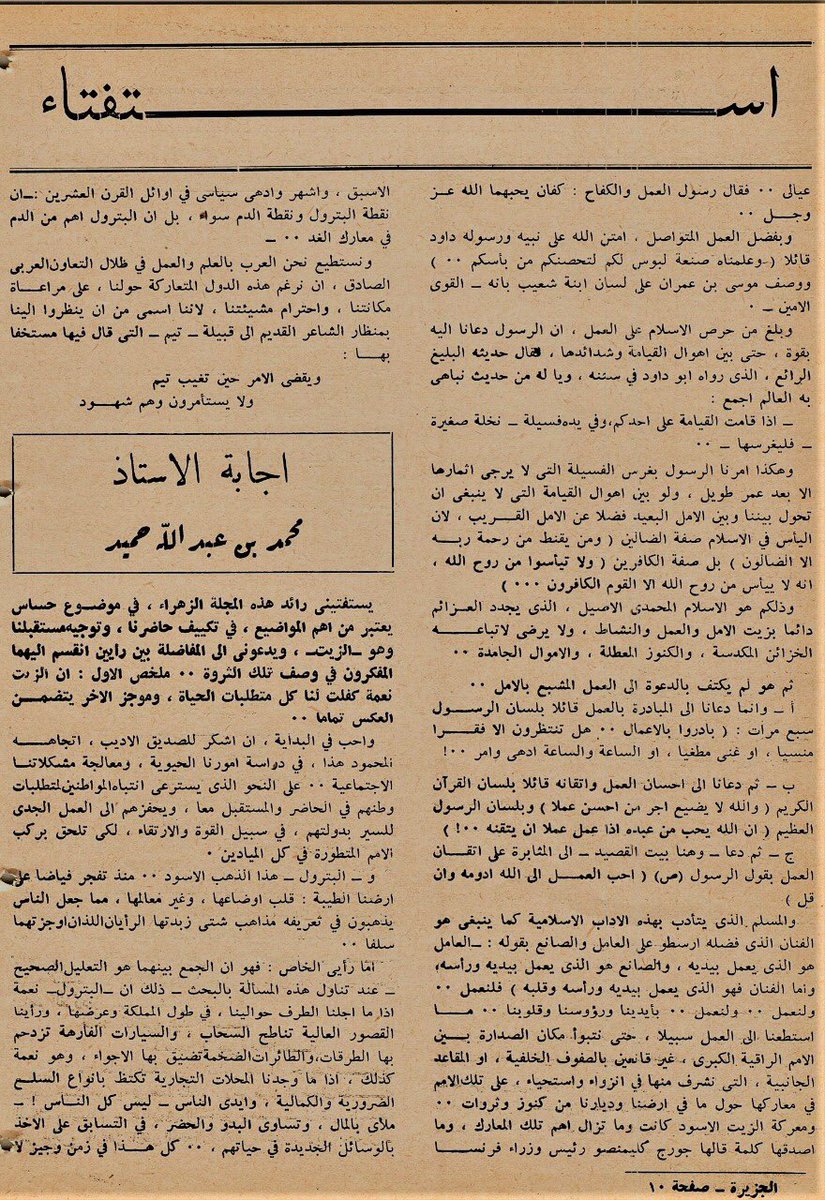 استفتاء
عيالى ٠٠ فقال رسول العمل والكفاح : كفان يحبهما الله عز
وجل ٠٠
وبفضل العمل المتواصل ، امتن الله على نبيه ورسوله داود
قائلا ( وعلمناه صنعة لبوس لكم لتحصنكم من بأسكم ٠٠ )
ووصف موسى بن عمران على لسان ابنة شعيب بانه ــ القوى
الامين ــ ٠
وبلغ من حرص الاسلام على العمل ، ان الرسول دعانا اليه
بقوة ، حتى بين اهوال القيامة وشدائدها ، فقال حديثه البليغ
الرائع ، الذى رواه ابو داود في سننه ، ويا له من حديث نباهى
به العالم اجمع :
ــ اذا قامت القيامة على احدكم،وفي يده فسيلة ــ نخلة صغيرة
ــ فليغرسها ــ ٠٠
وهكذا امرنا الرسول بغرس الفسيلة التى لا يرجى اثمارها
الا بعد عمر طويل ، ولو بين اهوال القيامة التى لا ينبغى ان
تحول بيننا وبين الامل البعيد فضلا عن الامل القريب ، لان
اليأس في الاسلام صفة الضالين ( ومن يقنط من رحمة ربه
الا الضالون ) بل صفة الكافرين ( ولا تيأسوا من روح الله ،
انه لا ييأس من روح الله الا القوم الكافرون ٠٠٠ )
وذلكم هو الاسلام المحمدى الاصيل ، الذى يجدد العزائم
دائما بزيت الامل والعمل والنشاط ، ولا يرضى لاتباعه
الخزائن المكدسة ، والكنوز المعطلة ، والاموال الجامدة ٠٠
ثم هو لم يكتف بالدعوة الى العمل المشبع بالامل ٠٠
أ ــ وانما دعانا الى المبادرة بالعمل قائلا بلسان الرسول
سبع مرات : ( بادروا بالاعمال ٠٠ هل تنتظرون الا فقرا
منسيا ، او غنى مطغيا ، او الساعة والساعة ادهى وامر ٠٠!
ب ــ ثم دعانا الى احسان العمل واتقانه قائلا بلسان القرآن
الكريم ( والله لا يضيع اجر من احسن عملا ) وبلسان الرسول
العظيم ( ان الله يحب من عبده اذا عمل عملا ان يتقنه ٠٠! )
ج ــ ثم دعا ــ وهنا بيت القصيد ــ الى المثابرة على اتقان
العمل بقول الرسول (ص) ( احب العمل الى الله ادومه وان
قل )
والمسلم الذى يتأدب بهذه الاداب الاسلامية كما ينبغى هو
الفنان الذى فضله ارسطو على العامل والصانع بقوله : ــ العامل
هو الذى يعمل بيديه ، والصانع هو الذى يعمل بيديه ورأسه،
وأما الفنان فهو الذى يعمل بيديه ورأسه وقلبه ) فلنعمل ٠٠
ولنعمل ٠٠ ولنعمل ٠٠ بأيدينا ورؤوسنا وقلوبنا ٠٠ ما
استطعنا الى العمل سبيلا ، حتى نتبوأ مكان الصدارة بين
الامم الراقية الكبرى ، غير قانعين بالصفوف الخلفية ، او المقاعد
الجانبية ، التى نشرف منها في انزواء واستحياء ، على تلك الامم
في معاركها حول ما في ارضنا وديارنا من كنوز وثروات ٠٠
ومعركة الزيت الاسود كانت وما تزال اهم تلك المعارك ، وما
اصدقها كلمة قالها جورج كليمنصو رئيس وزراء فرنسا
الاسبق ، واشهر وادهى سياسى في اوائل القرن العشرين :ــ ان
نقطة البترول ونقطة الدم سواء ، بل ان البترول اهم من الدم
في معارك الغد ٠٠ ــ
ونستطيع نحن العرب بالعلم والعمل في ظلال التعاون العربى
الصادق ، ان نرغم هذه الدول المتعاركة حولنا ، على مراعاة
مكانتنا ، واحترام مشيئتنا ، لاننا اسمى من ان ينظروا الينا
بمنظار الشاعر القديم الى قبيلة ــ تيم ــ التى قال فيها مستخفا
بها :
ويقضى الامر حين تغيب تيم
ولا يستأمرون وهم شهود
اجابة الاستاذ
محمد بن عبد الله حميد
يستفتينى رائد هذه المجلة الزهراء ، في موضوع حساس
يعتبر من اهم المواضيع ، في تكييف حاضرنا ، وتوجيه مستقبلنا
وهو ــ الزيت ــ ، ويدعونى الى المفاضلة بين رايين انقسم اليهما
المفكرون في وصف تلك الثروة ٠٠ ملخص الاول : ان الزيت
نعمة كفلت لنا كل متطلبات الحياة ، وموجز الاخر يتضمن
العكس تماما ٠٠
واحب في البداية ، ان اشكر للصديق الاديب ، اتجاهه
المحمود هذا ، في دراسة امورنا الحيوية ، ومعالجة مشكلاتنا
الاجتماعية ٠٠ على النحو الذى يسترعى انتباه المواطنين لمتطلبات
وطنهم في الحاضر والمستقبل معا ، ويحفزهم الى العمل الجدى
للسير بدولتهم ، في سبيل القوة والارتقاء ، لكى تلحق بركب
الامم المتطورة في كل الميادين ٠
و ــ البترول ــ هذا الذهب الاسود ٠٠ منذ تفجر فياضا على
ارضنا الطيبة : قلب اوضاعها ، وغير معالمها ، مما جعل الناس
يذهبون في تعريفه مذاهب شتى زبدتها الرأيان اللذان اوجزتهما
سلفا ٠٠
اما رأيى الخاص : فهو ان الجمع بينهما هو التعليل الصحيح
ــ عند تناول هذه المسألة بالبحث ــ ذلك ان ــ البترول ــ نعمة
اذا ما اجلنا الطرف حوالينا ، في طول المملكة وعرضها ، ورأينا
القصور العالية تناطح السحاب ، والسيارات الفارهة تزدحم
بها الطرقات،والطائرات الضخمة تضيق بها الاجواء ، وهو نعمة
كذلك ، اذا ما وجدنا المحلات التجارية تكتظ بانواع السلع
الضرورية والكمالية ، وايدى الناس ــ ليس كل الناس ! ــ
ملأى بالمال ، وتساوى البدو والحضر ، في التسابق على الاخذ
بالوسائل الجديدة في حياتهم ، ٠٠ كل هذا في زمن وجيز لا
الجزيرة ــ صفحة ١٠